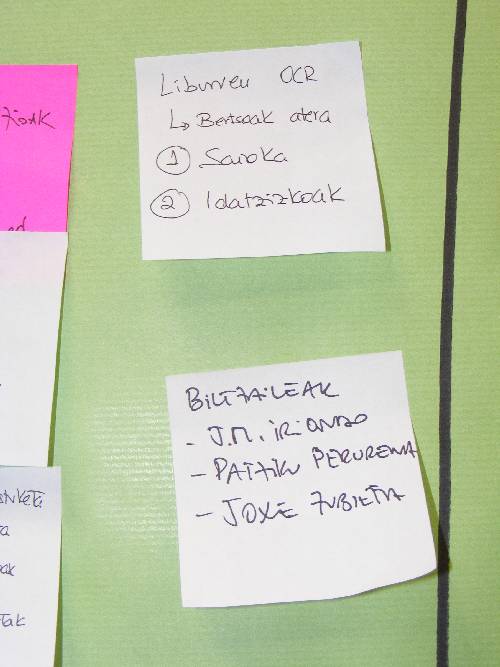 Liburuen OCR
↳ Bertsoak atera
① Sarioka
② Idatzizkoak
BILTZAILEAK
- J.M. IRIONDO
- PATXIKU PERURENA
- JOXE ZUBIETA